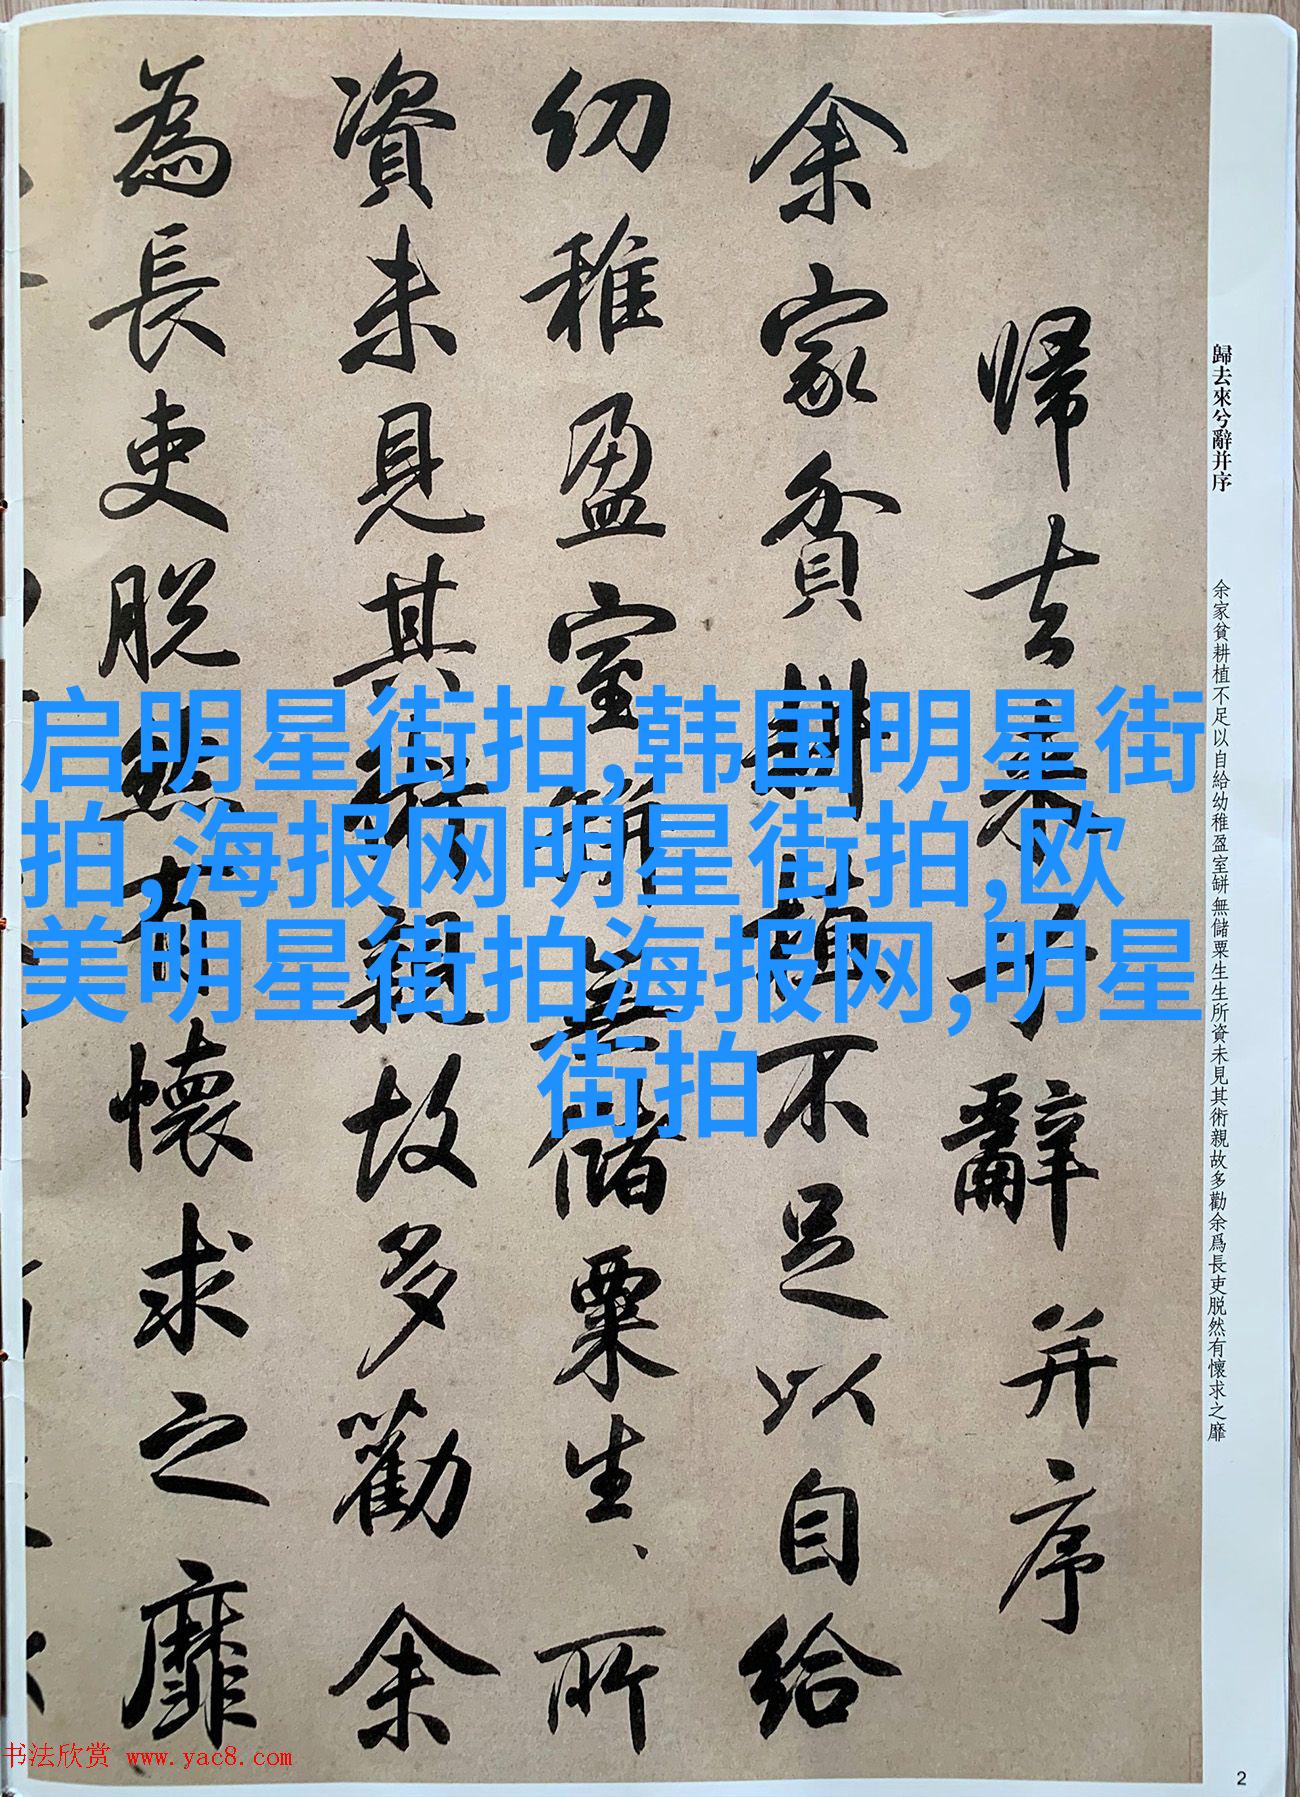 歸去來兮辭并序
余家貧耕植不足以自給
幼稚盈室缾無儲粟生、所
資未見其術親故多勸余
為長吏脱然有懷求之靡
歸去來兮辭并序
余家貧耕植不足以自給幼稚盈室缾無儲粟生生所資未見其術親故多勸余爲長吏脱然有懷求之靡
启明星街拍,韩国明星街
拍,海报网明星街拍,欧
美明星街拍海报网,明星
街拍
书法欣赏 www.yac8.com
2